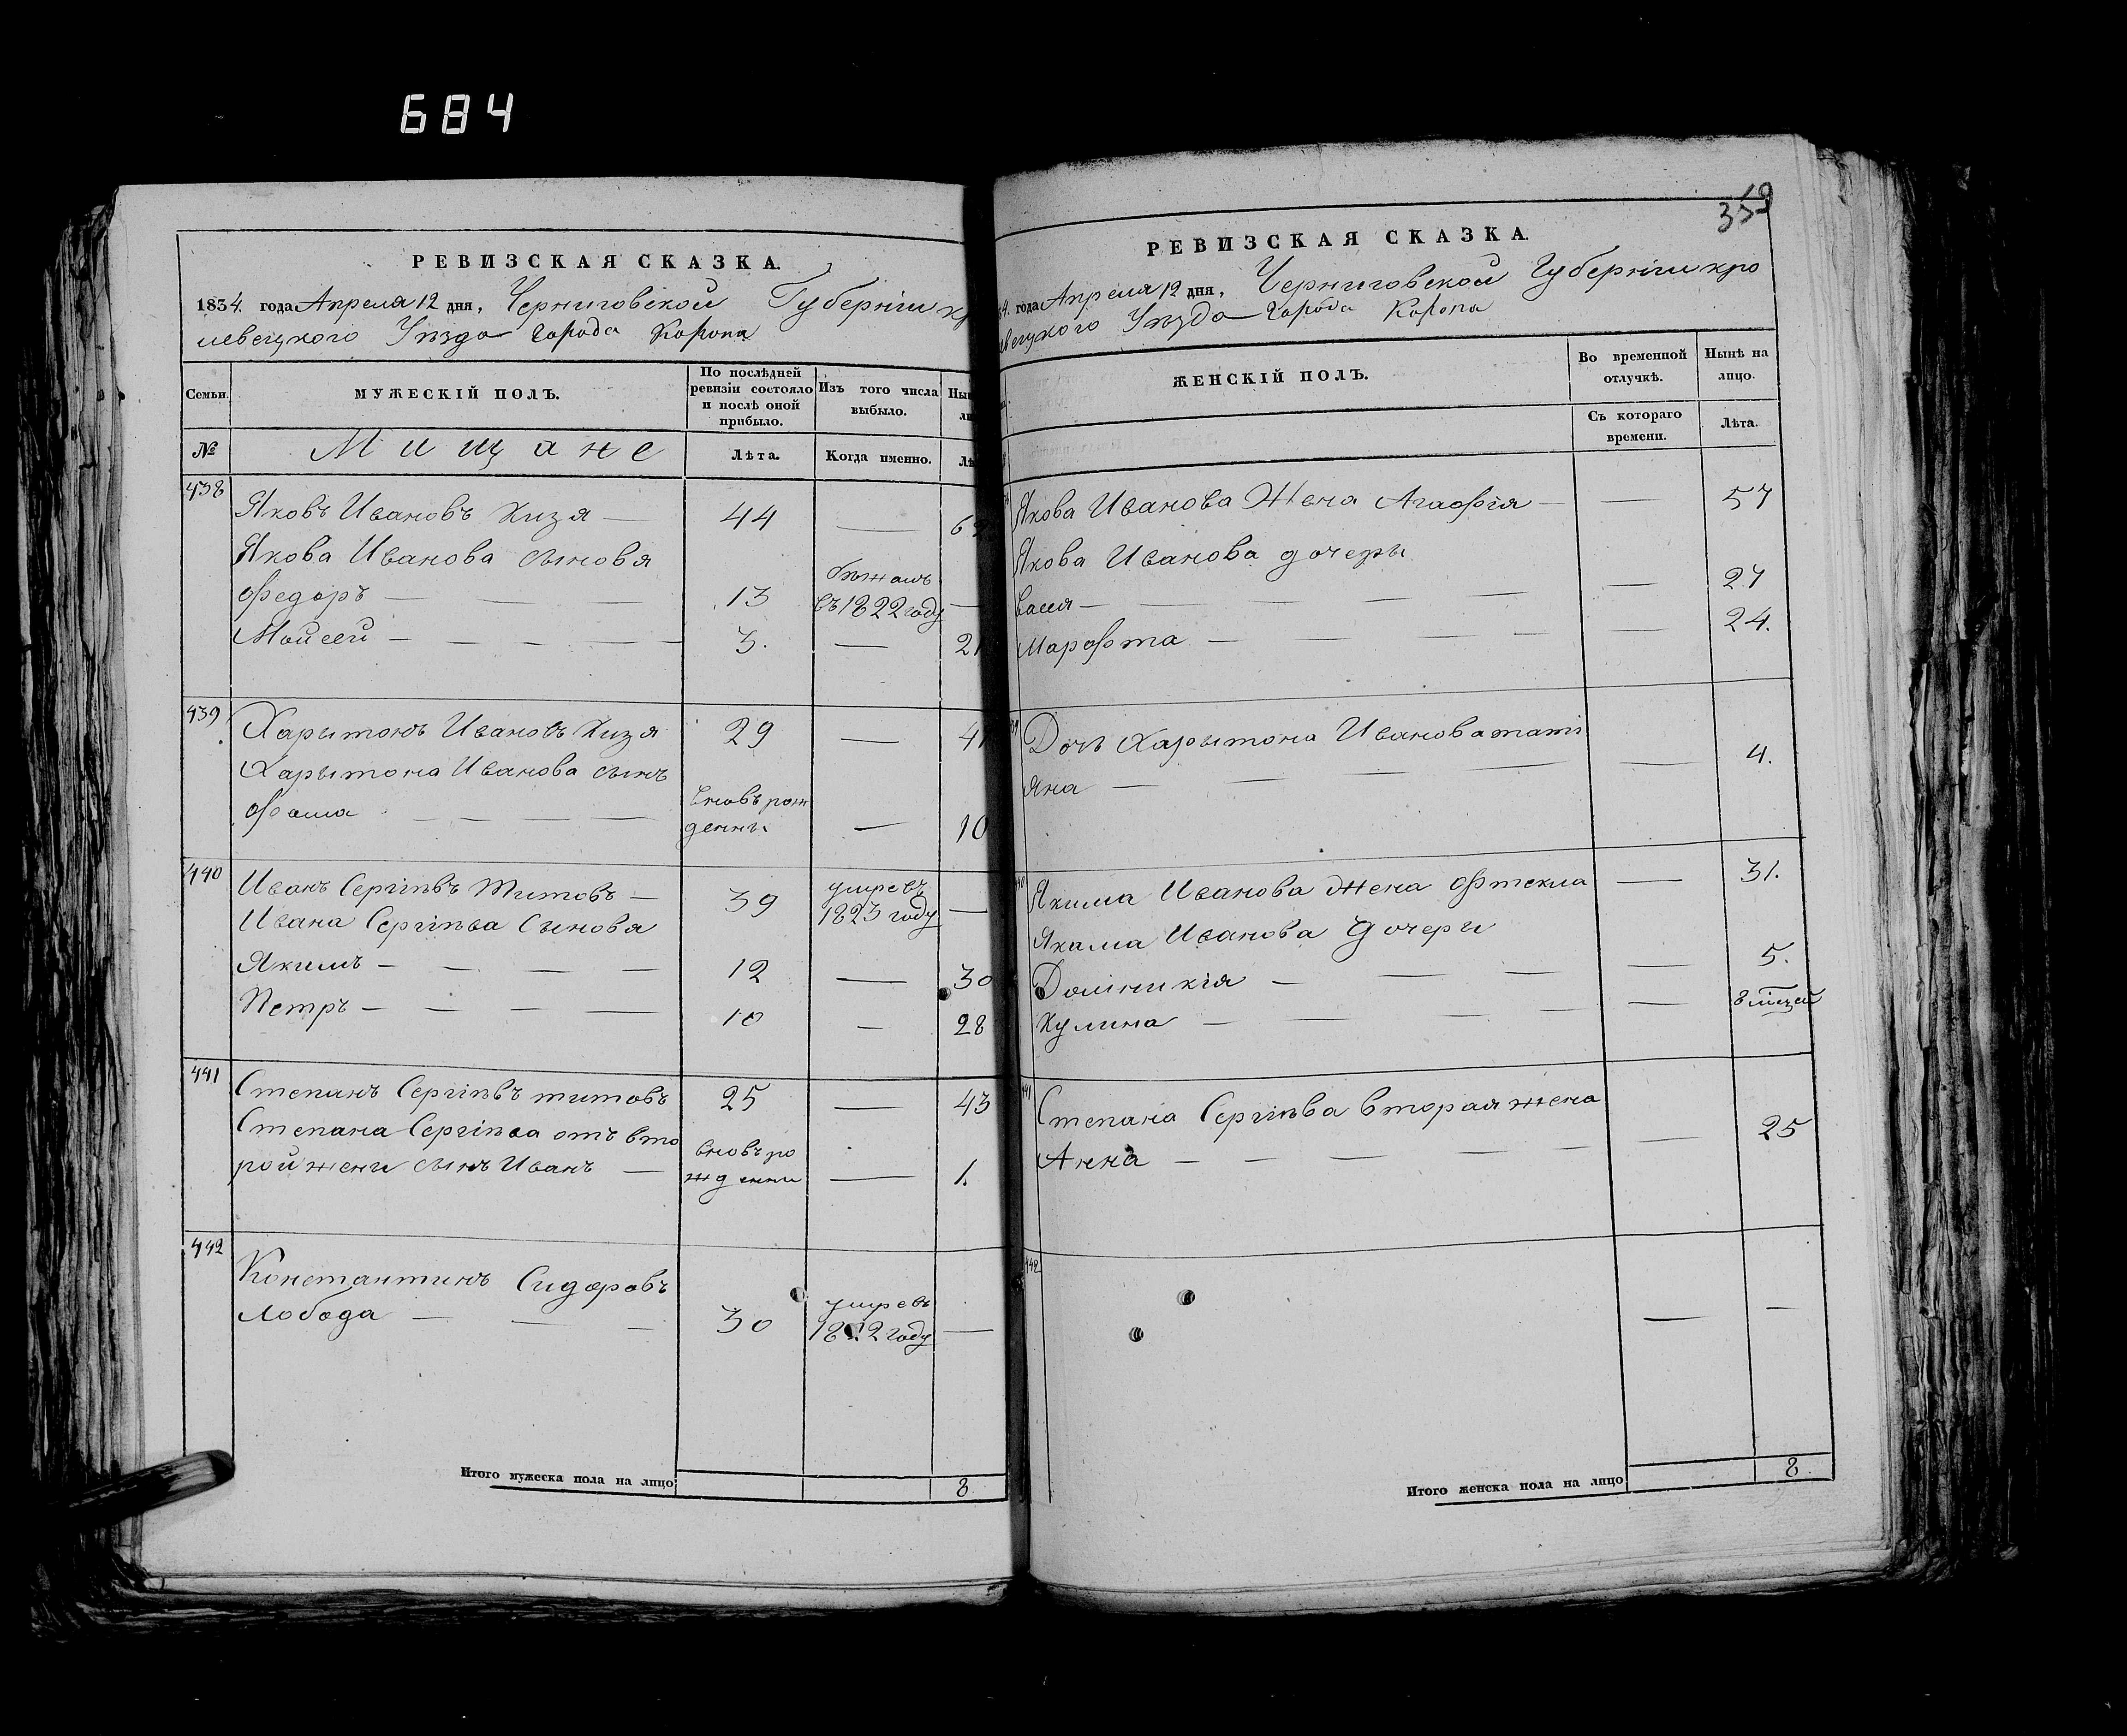 684
РЕВИЗСКАЯ СКАЗКА.
1834. года Апреля 12 дня, Черниговской Губерніи кр
левецкого Уѣзда города Коропа
Семьи.
МУЖЕСКІЙ ПОЛЪ.
По послѣдней ревизіи состояло и послѣ оной прибыло.
Изъ того числа выбыло.
Ны
ли
№
Мищане
Лѣта.
Когда именно.
Лѣ
438
Яковъ Ивановъ Хизя — 44 —
Якова Иванова сыновя
Федоръ — 13 бѣжалъ въ 1822 году —
Мойсей — 3. — 21
439
Харытонъ Ивановъ Хизя 29 — 4
Харытона Иванова сынъ
Фома — вновь рож
денны — 10
440
Иванъ Сергіѣвъ Титовъ — 39 умревъ 1823 году —
Ивана Сергіѣва Сыновя
Якимъ — 12 — 30
Петръ — 10 — 28
441
Степанъ Сергіѣвъ титовъ 25 — 43
Степана Сергіѣва отъ вто
рой жени сынъ Иванъ — вновь ро
жденни — 1.
442
Константинъ Сидоровъ
Лобода — 30 умревъ году —
Итого мужеска пола на лицо 8
359
РЕВИЗСКАЯ СКАЗКА.
4. года Апреля 12 дня, Черниговской Губерніи кро
левецкого Уѣзда города Коропа
ЖЕНСКІЙ ПОЛЪ.
Во временной отлучкѣ.
Нынѣ на лицо.
Съ котораго времени.
Лѣта.
Якова Иванова Жена Агафія — — 57
Якова Иванова дочеры
— — 27
Марфта — — 24.
39
Дочъ Харытона Иванова тати
яна — — 4.
40
Якима Иванова жена Фтекла — 31.
Якима Иванова Дочери
Домникія — — 5.
Кулина — — 8 міцей
41
Степана Сергіѣва вторая жена
Анна — — 25
442
— —
Итого женска пола на лицо 8.